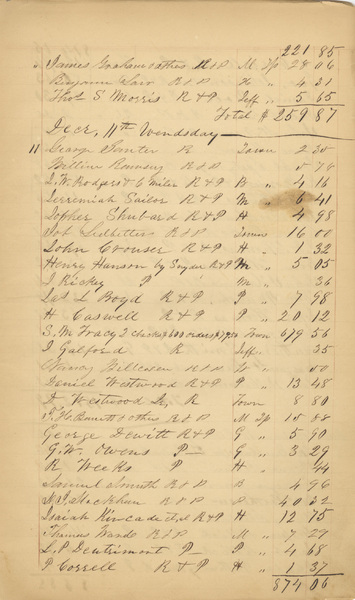 221 85
James Graham & others R & P M. Tp 28 06
Benjamin R & P H " 4 31
Thos S Morris R & P Jeff " 5 65
Total $ 259 87
Decr, 11th Wendsday
11 George R Town 2 30
William R & P " 76
J. W. Rodgers & C Miler R & P B " 4 16
Jerremiah Sailor R & P M " 6 41
Topher Shubard R & P H " 4 98
Ledbetter R & P Town 16 00
John Crouser R & P H " 1 32
Henry Hanson by Snyder R & P M " 5 05
J Rickey P M " 36
Jas L Boyd R & P P " 7 98
H Caswell R & P P " 20 12
S. M. Tracy 2 checks $600 orders $79.56 Town 679 56
J Galford R Jeff. 35
Nancy R & P " 60
Daniel Westwood R & P P " 13 48
Westwood Sr, R Town 8 80
Bennett & others R & P M Tp 15 88
George Dewitt R & P G " 5 90
G. W. Owens P G " 3 29
R Weeks P H " 44
Samuel Smith R & P B " 4 96
Stockham R & P P " 40 32
Isaiah Kincade R & P H 12 75
Thomas Wards R & P M " 7 29
L. P Dentrimont P P " 4 68
P Correll R & P H " 1 37
874 06